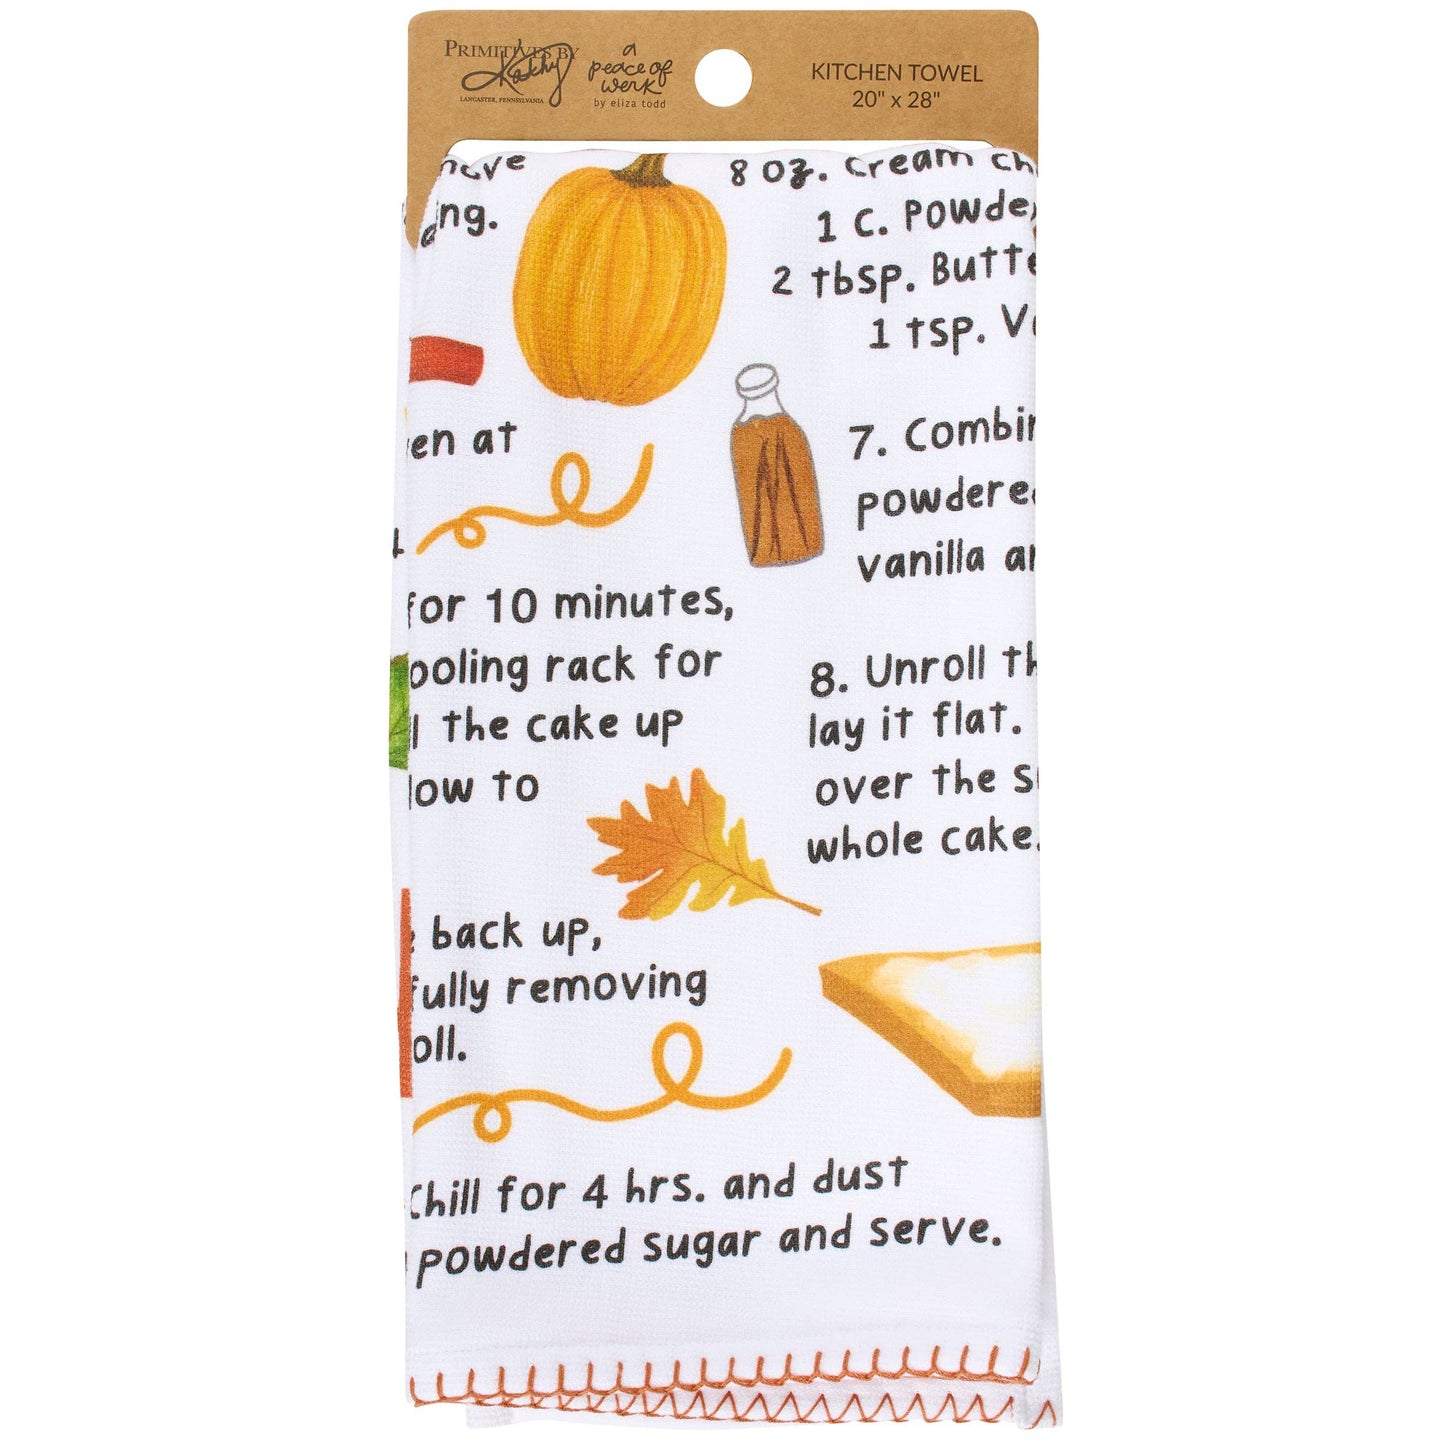 PRIMITIVES BY
Kathy
LANCASTER, PENNSYLVANIA
a
peace of
werk
by eliza todd
KITCHEN TOWEL
20" x 28"
ng.
en at
for 10 minutes,
ooling rack for
the cake up
low to
back up,
fully removing
oll.
8 oz. Cream ch
1 C. Powde
2 tbsp. Butte
1 tsp. V
7. Combin
powdered
vanilla a
8. Unroll th
lay it flat.
over the s
whole cake.
Chill for 4 hrs. and dust
powdered sugar and serve.